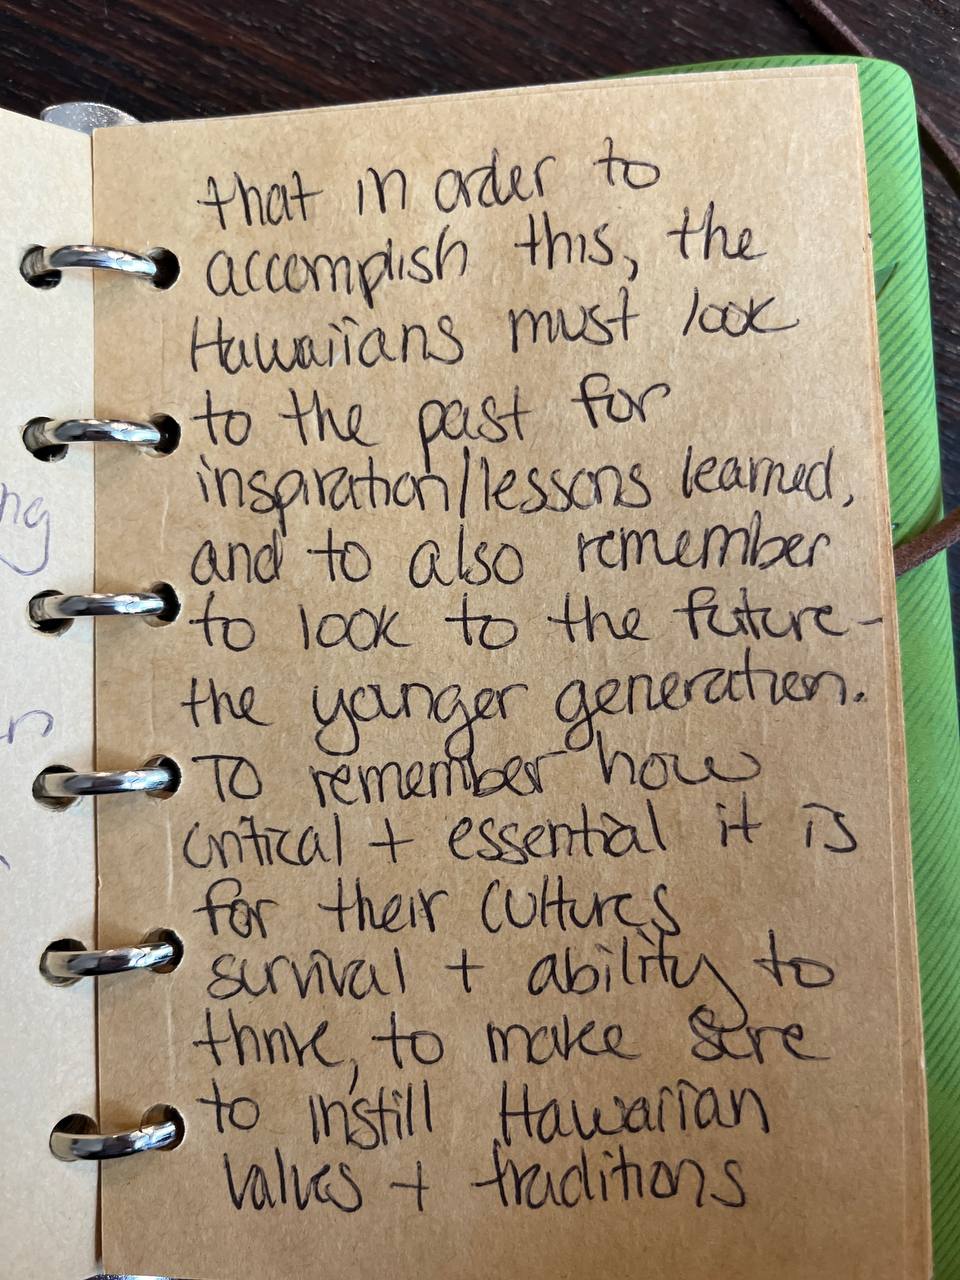 that in order to
accomplish this, the
Hawaiians must look
to the past for
inspiration/lessons learned,
and to also remember
to look to the future -
the younger generation.
To remember how
critical + essential it is
for their cultures
survival + ability to
thrive, to make sure
to instill Hawaiian
values + traditions
ng